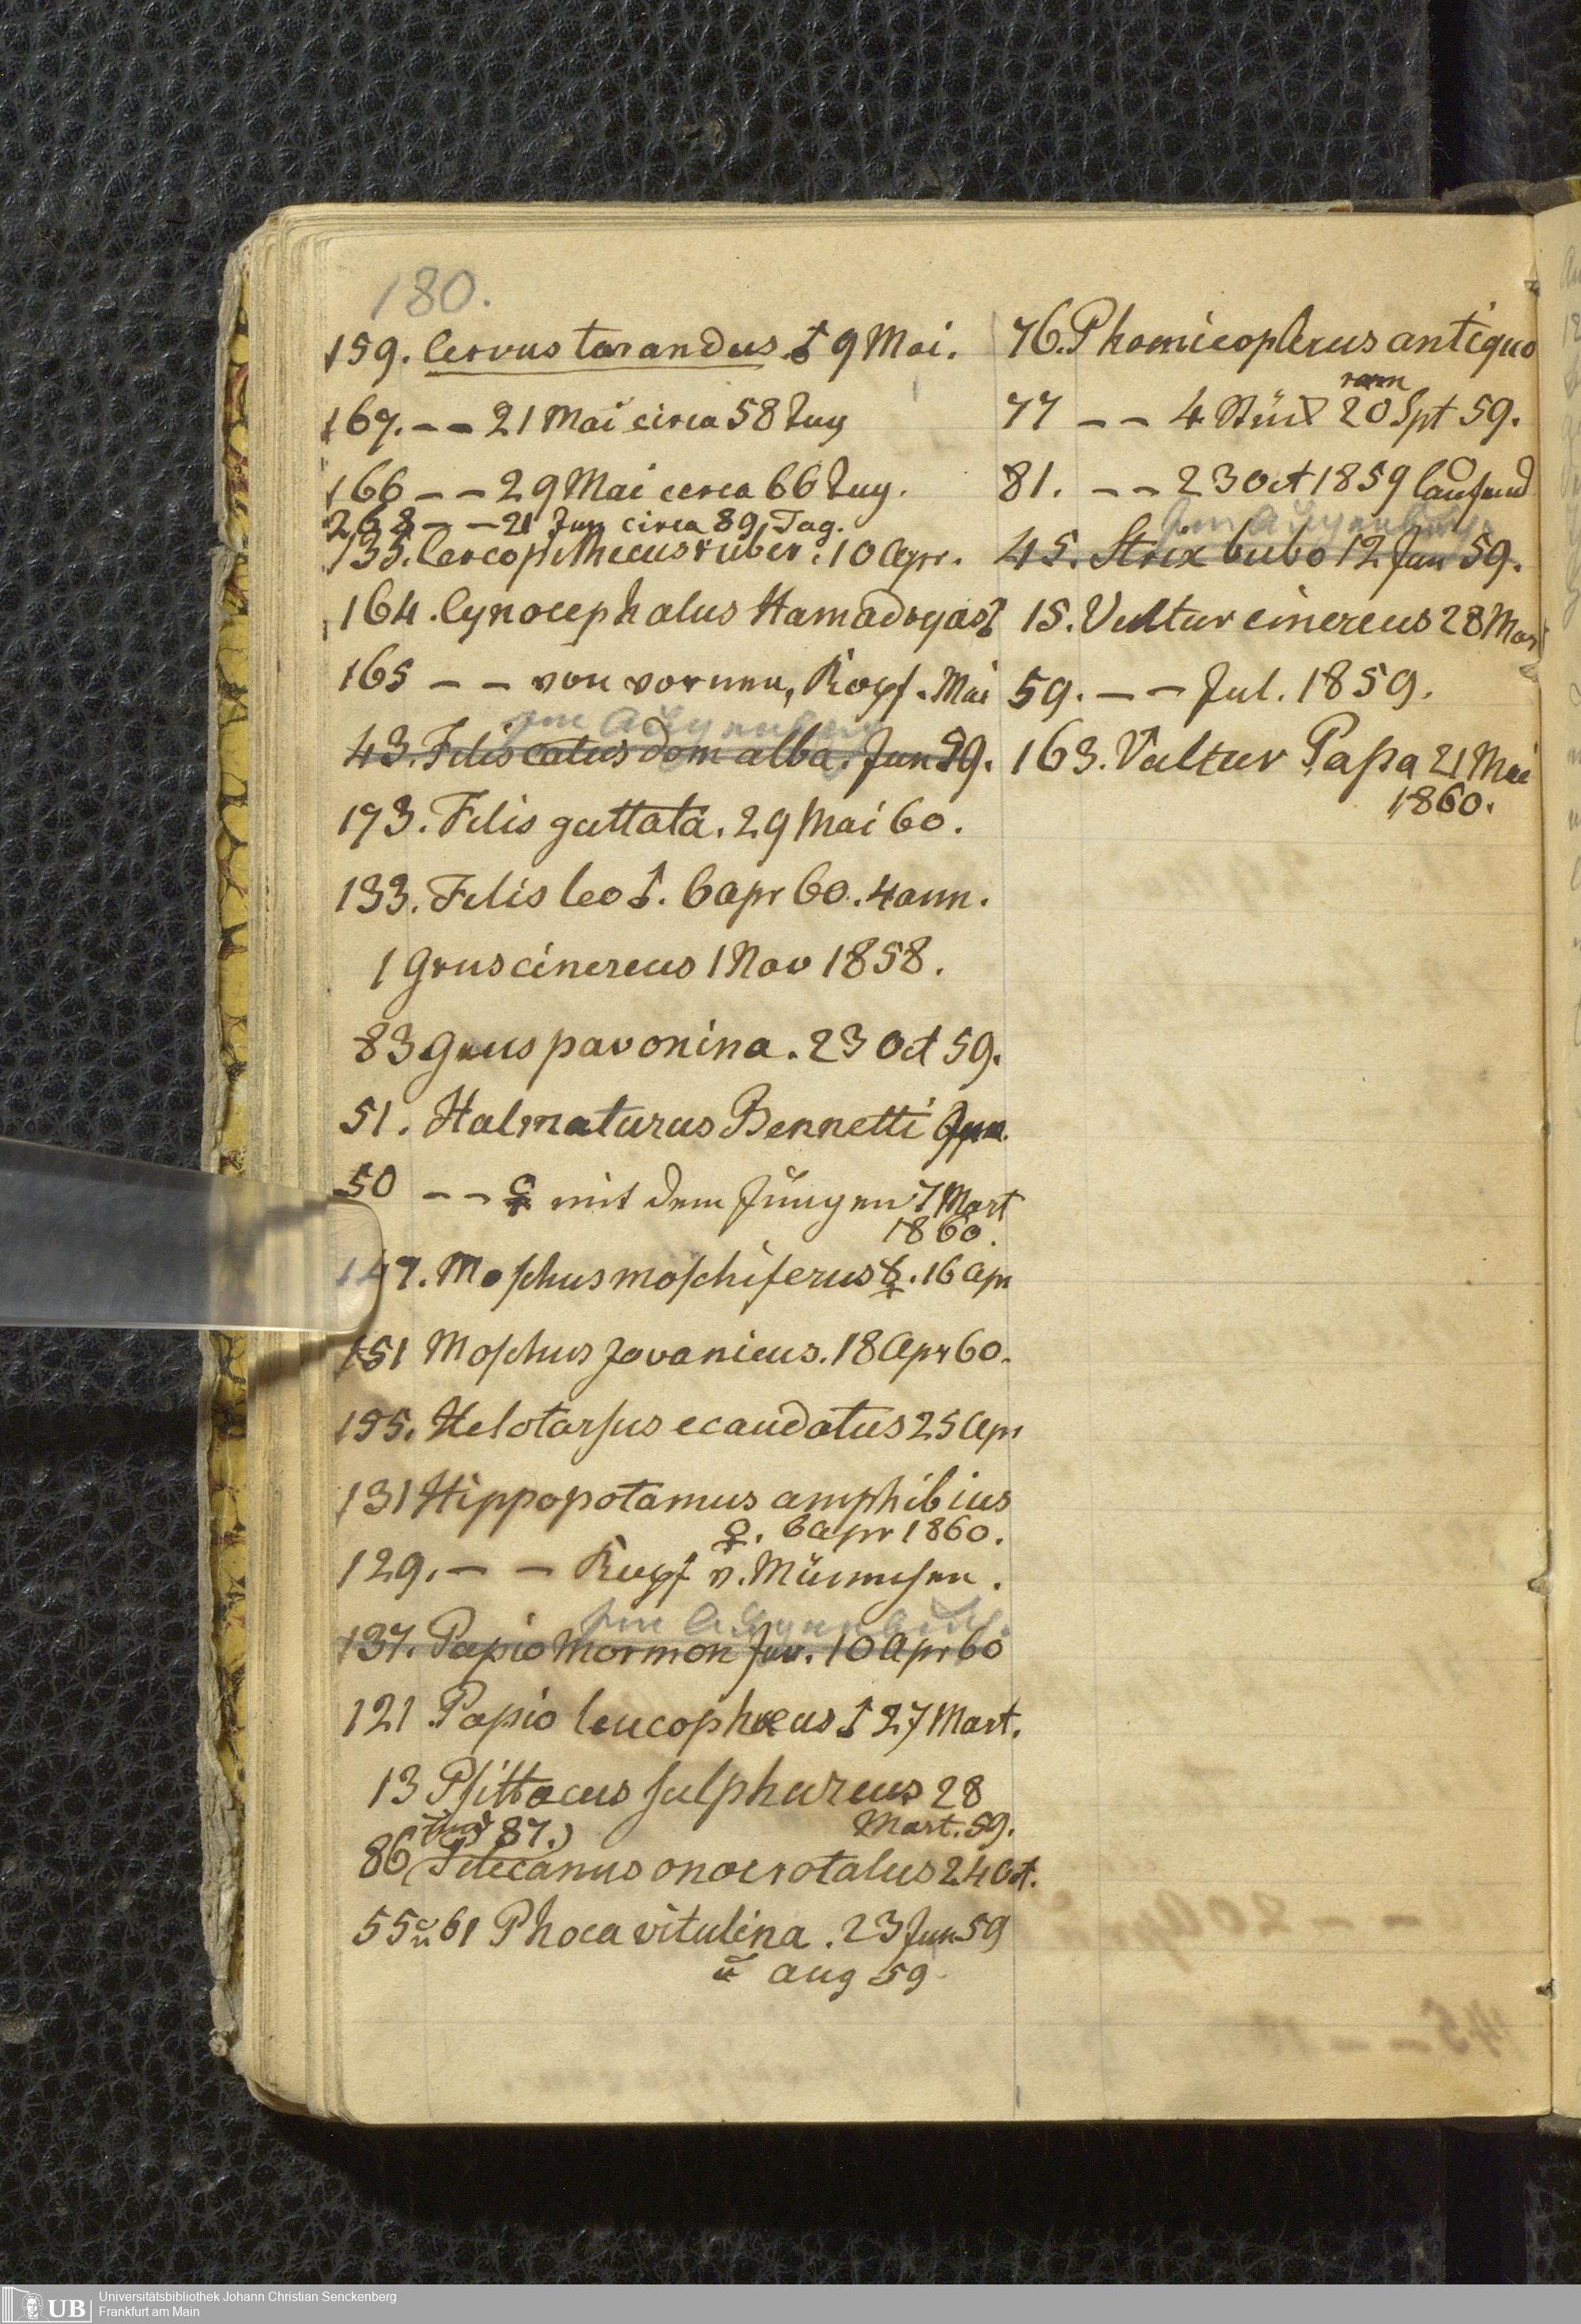 180.
159. Cervus tarandus ♂ 9 Mai.
167. – – 21 Mai circa 58 Tag
166 – – 29 Mai circa 66 Tag.
268 – – 21 Jun circa 89 Tag.
135. Cercopithecus ruber. 10 Apr.
164. Cynocephalus Hamadryas ♂
165 – – von vornen, Kopf. Mai
im Affenbuch
43. Felis catus dom alba. Jun 59.
173. Felis guttata. 29 Mai 60.
133. Felis leo ♂. 6 apr 60. 4 ann.
1 Grus cinereus 1 Nov 1858.
83 Grus pavonina. 23 Oct 59.
51. Halmaturus Bennetti Jun.
50 – – ♀ mit dem Jungen 7 Mart
1860.
147. Moschus moschiferus ♀. 16 Apr
151 Moschus Javanicus. 18 Apr 60.
195. Helotarsus ecaudatus 25 Apr
131 Hippopotamus amphibius
♀. 6 apr 1860.
129. – – Kopf v.
137. Papio Mormon Juv. 10 Apr 60
121 Papio leucophæus ♂ 27 Mart.
13 Psittacus sulphureus 28
Mart. 59.
und 87.)
86 (Pelecanus onocrotalus 24 Oct.
55 u 61 Phoca vitulina. 23 Jun 59
u aug 59
76. Phoenicopterus antiquo
rum
77 – – 4 Stück 20 Spt 59.
81. – – 23 Oct 1859 laufend
45. Strix bubo 12 Jun 59.
15. Vultur cinereus 28 Mart
59. – – Jul. 1859.
163. Vultur Papa 21 Mai
1860.
Universitätsbibliothek Johann Christian Senckenberg
Frankfurt am Main
UB